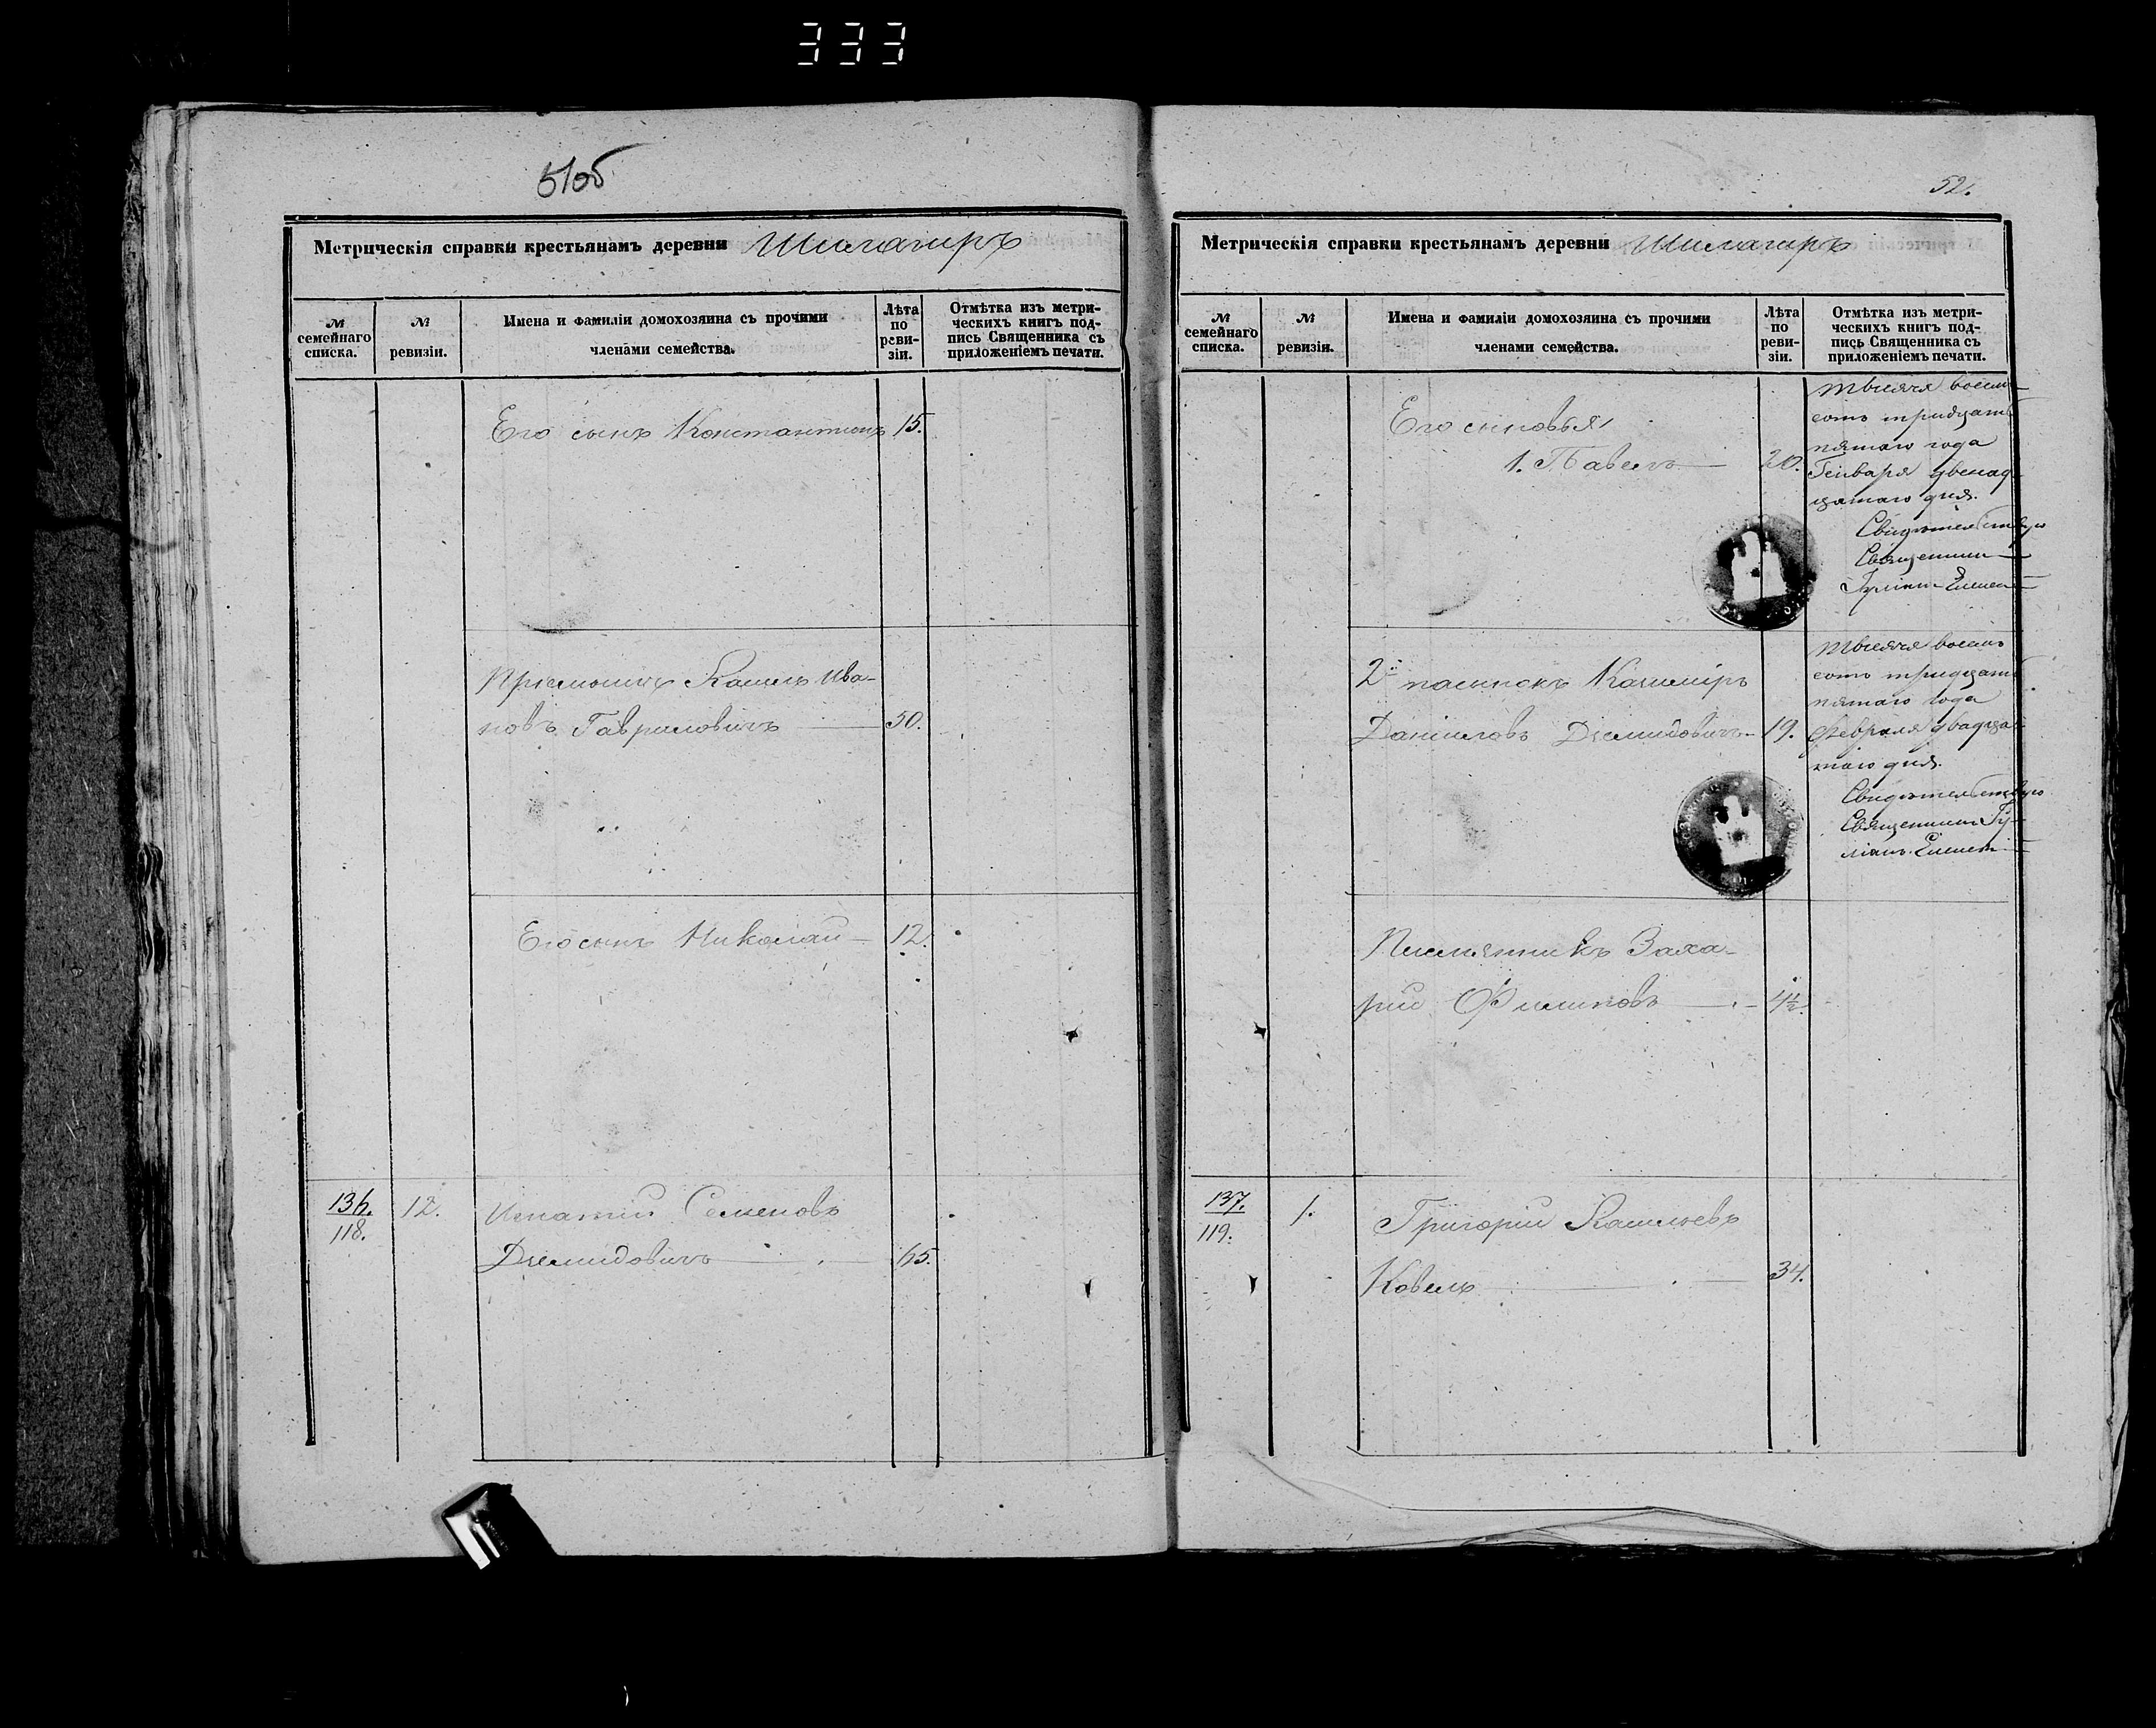 333
51об
Метрическія справки крестьянамъ деревни
№ семейнаго списка.
№ ревизіи.
Имена и фамиліи домохозяина съ прочими членами семейства.
Лѣта по реви-зіи.
Отмѣтка изъ метри-ческихъ книгъ под-пись Священника съ приложеніемъ печати.
Его сынъ Константинъ 15.
Пріемышъ Ива-
новъ Гавриловичъ 50.
Его сынъ Николай 12.
136.
118.
12.
Игнатій Семеновъ
Демидовичъ 65.
52.
Метрическія справки крестьянамъ деревни
№ семейнаго списка.
№ ревизіи.
Имена и фамиліи домохозяина съ прочими членами семейства.
Лѣта по реви-зіи.
Отмѣтка изъ метри-ческихъ книгъ под-пись Священника съ приложеніемъ печати.
Его сыновья
1. Павелъ 20.
тысяча восем
сотъ тридцать
пятаго года
Генваря двенад-
цатаго дня.
Свидѣтельствую
Священникъ
2й пасынокъ Казиміръ
Даниловъ Демидовичъ 19.
тысяча восемь
сотъ тридцать
пятаго года
Февраля двадца
таго дня.
Свидѣтельствую
Священникъ
Племянникъ Заха-
рій Филиповъ 4½.
137.
119.
1.
Григорій
Ковель 34.